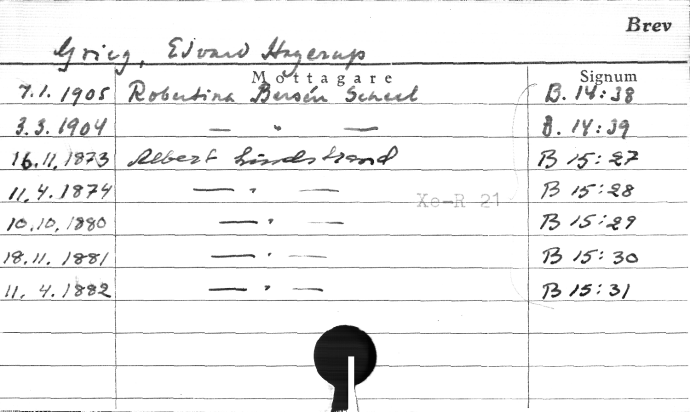 Brev
Grieg, Edvard Hagerup
Mottagare Signum
7.1.1905 Robertina Bersén Scheel B. 14:38
3.3.1904 — " — B. 14:39
16.11.1873 Albert Lindstrand B 15:27
11.4.1874 — " — B 15:28
Xe-R 21
10.10.1880 — " — B 15:29
18.11.1881 — " — B 15:30
11.4.1882 — " — B 15:31